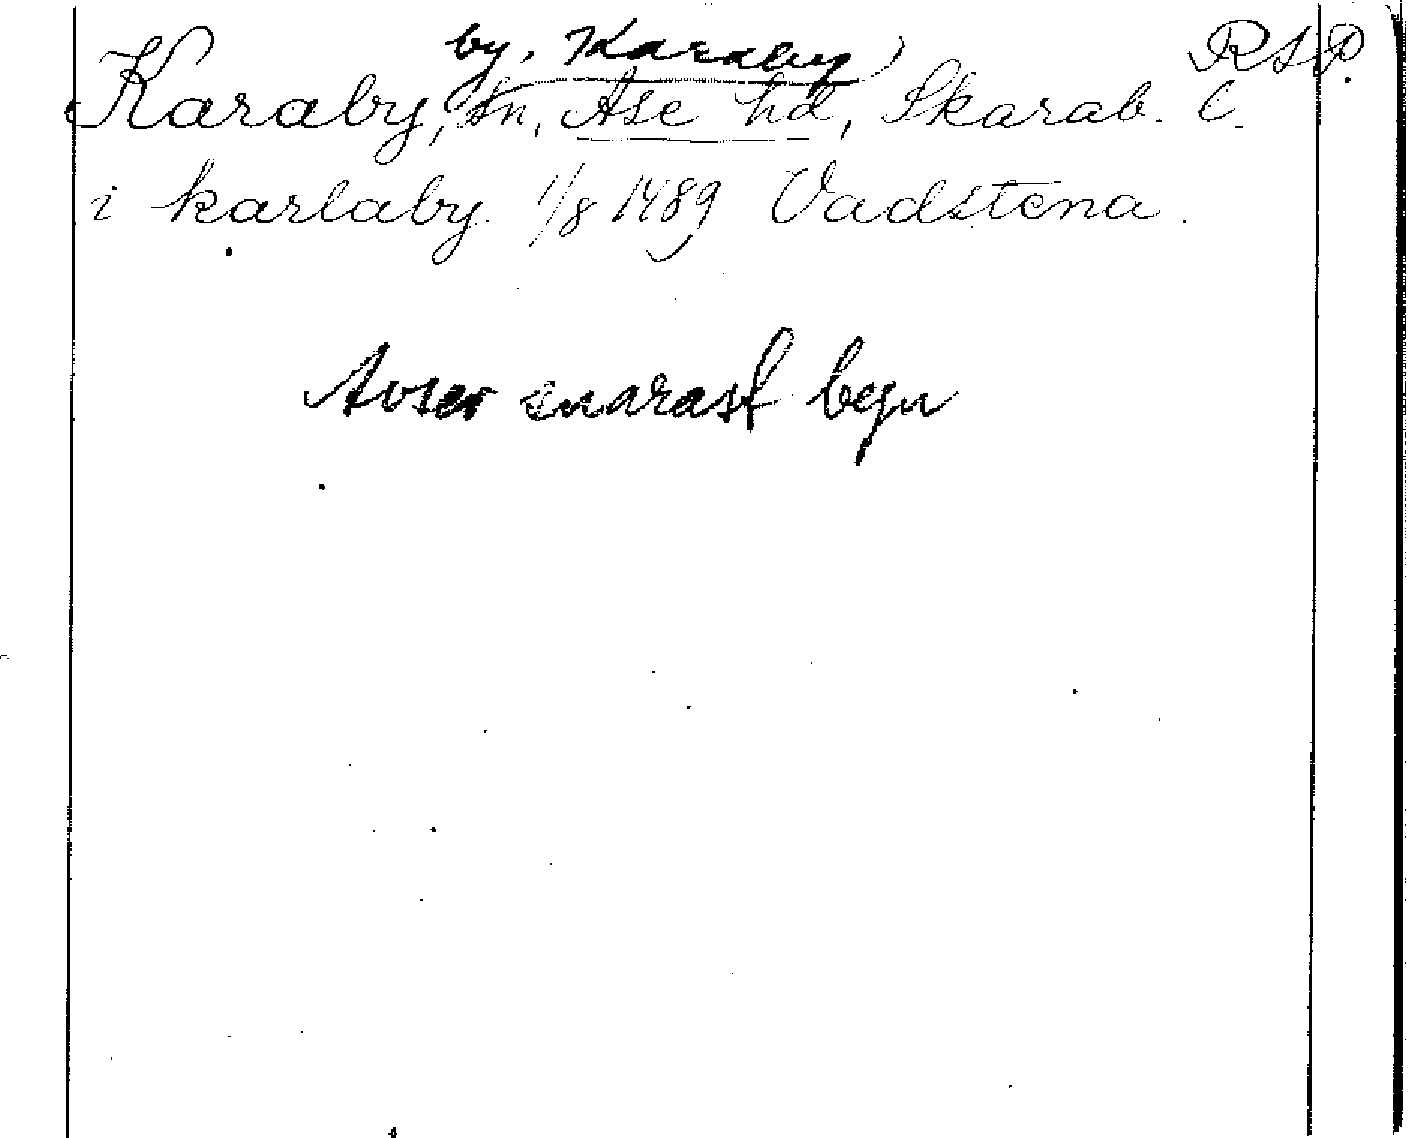 by, Karaby
R A P.
Karaby, sn, Åse hd, Skarab. l.
i karlaby. 1/8 1489 Vadstena.
Avser snarast byn